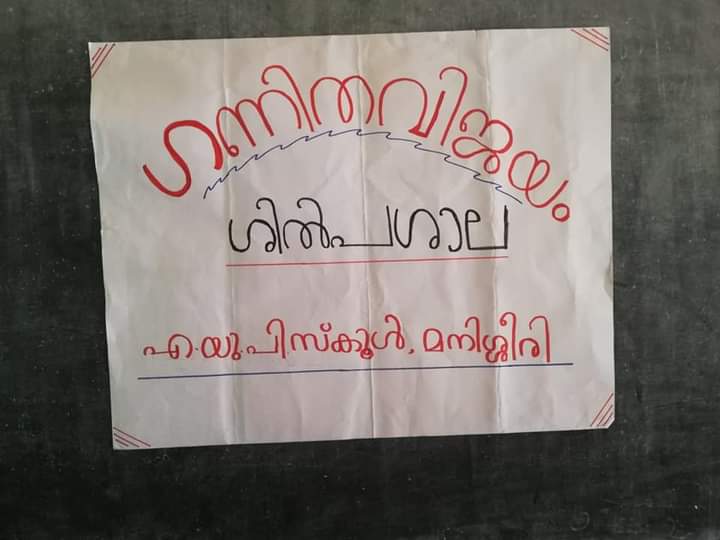 ഗണിതവിജയം
ശിൽപശാല
എ.യു.പി.സ്കൂൾ, മനിശ്ശീരി